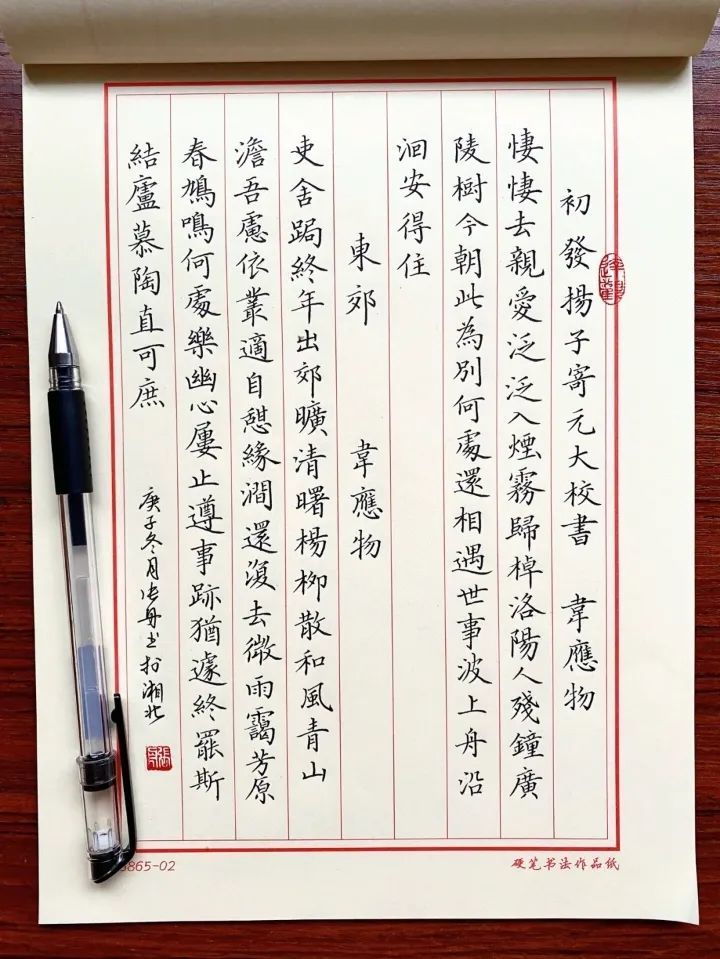 初發揚子寄元大校書　韋應物
悽悽去親愛泛泛入煙霧歸棹洛陽人殘鐘廣
陵樹今朝此為別何處還相遇世事波上舟沿
洄安得住
東郊　韋應物
吏舍跼終年出郊曠清曙楊柳散和風青山
澹吾慮依叢適自憩緣澗還復去微雨靄芳原
春鳩鳴何處樂幽心屢止遵事跡猶遽終罷斯
結廬慕陶直可庶
庚子冬月张丹书於湘北
865-02
硬笔书法作品纸